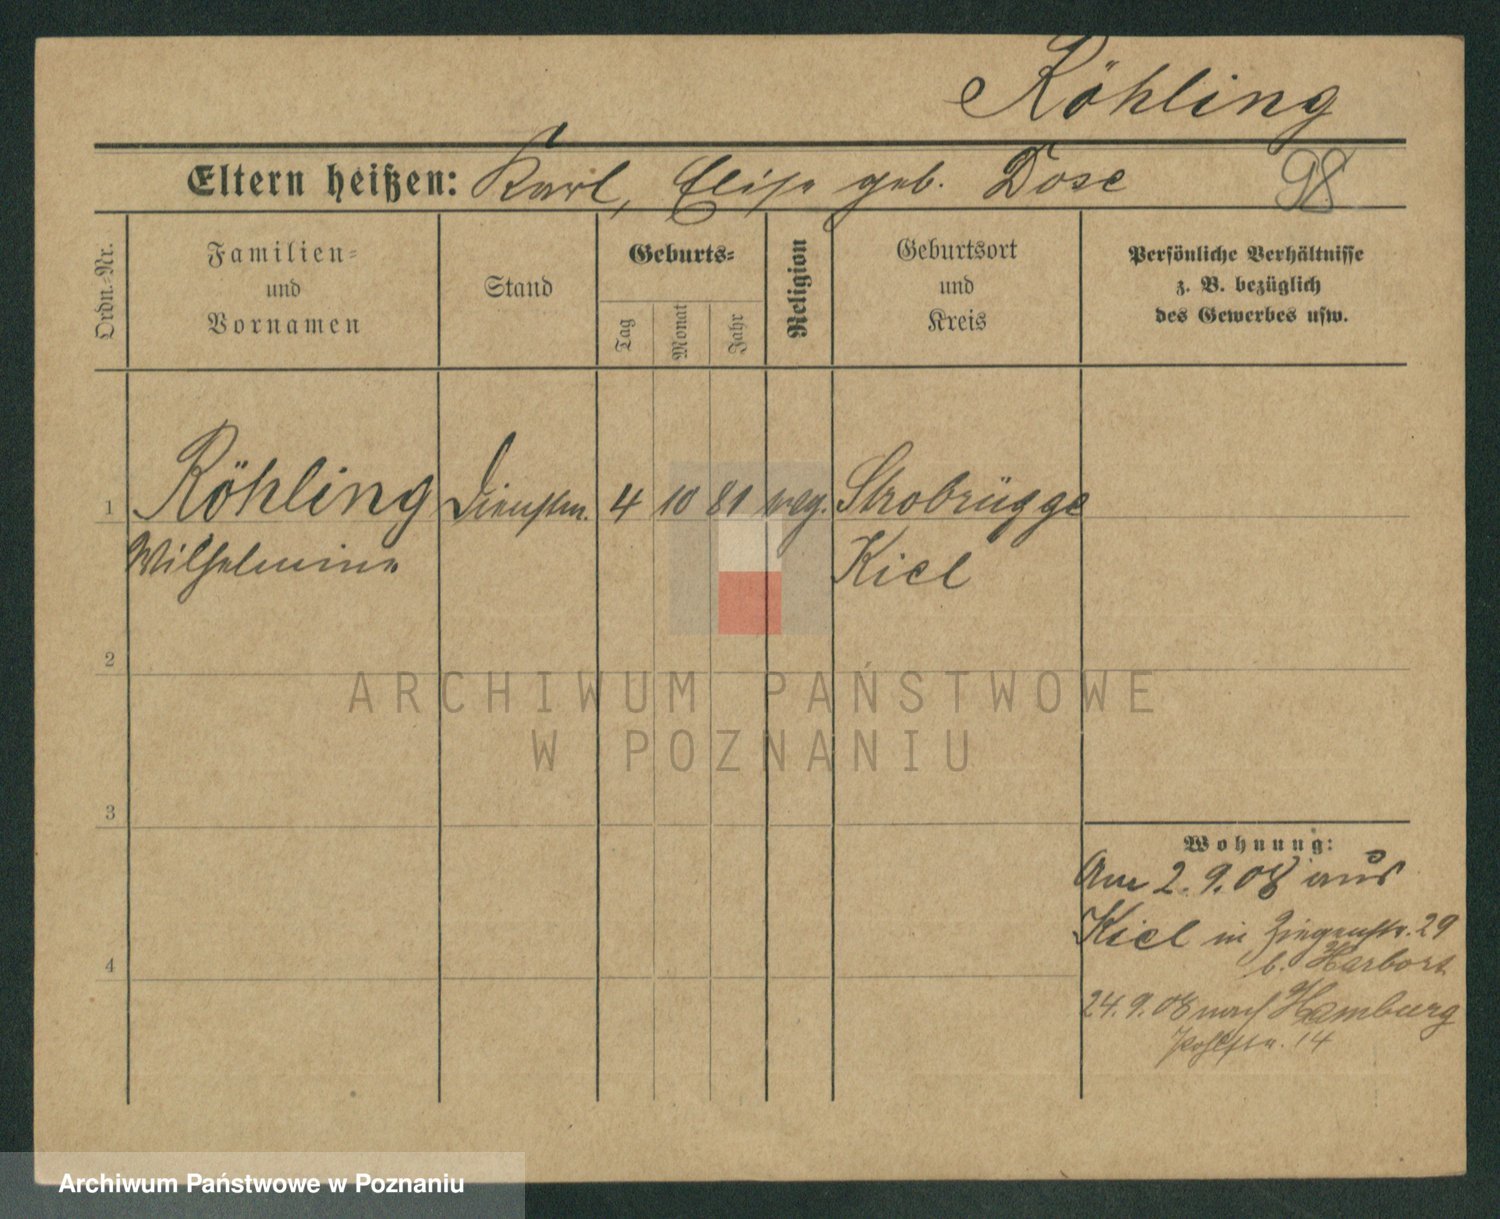 Röhling
Eltern heißen: Karl, Elise geb. Dose
98
Ordn.-Nr.
Familien-
und
Vornamen
Stand
Geburts-
Tag
Monat
Jahr
Religion
Geburtsort
und
Kreis
Persönliche Verhältnisse
z. B. bezüglich
des Gewerbes usw.
1 Röhling Dienstm. 4 10 81 evg. Strobrügge
Wilhelmine Kiel
2
ARCHIWUM PAŃSTWOWE
W POZNANIU
3
Wohnung:
Am 2.9.08 aus
Kiel in Ziegenstr. 29
b. Harbort
4
24.9.08 nach Hamburg
14
Archiwum Państwowe w Poznaniu